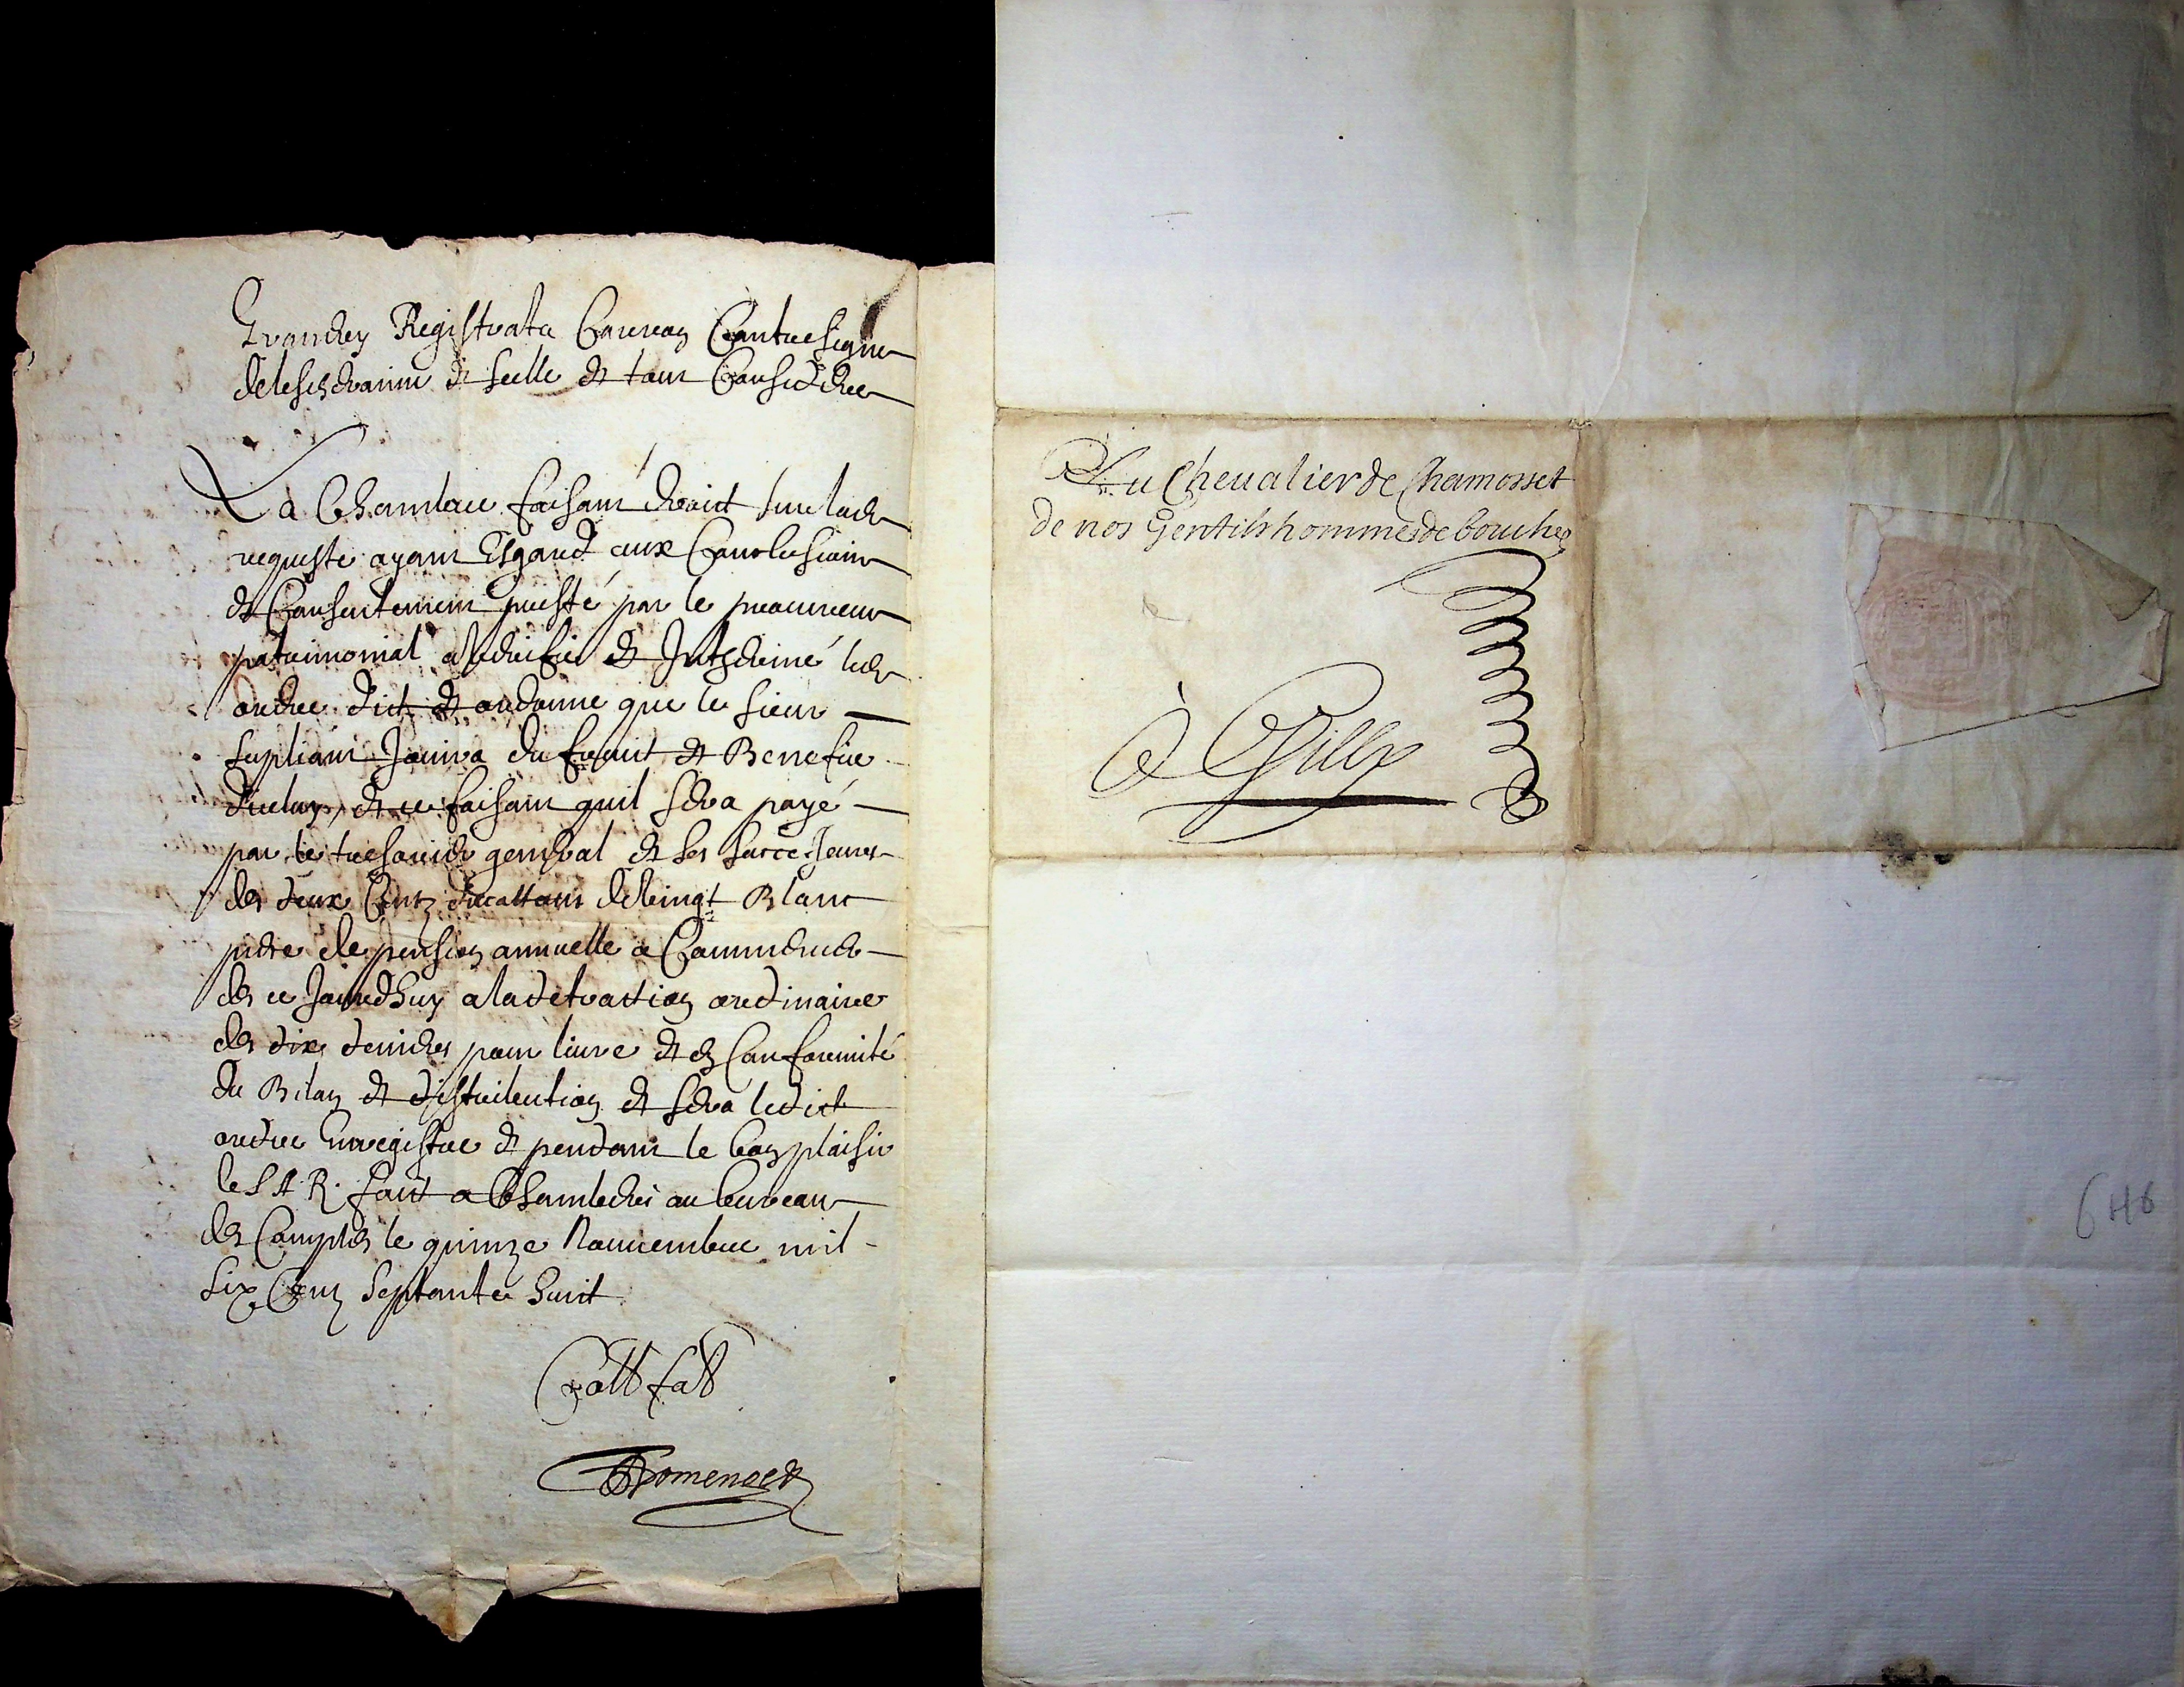 Grandery Registrata Carron Contresigne
delesclaranne et seelle et tout Consideré
La Chambre faisant droict sur lade
requeste ayant Esgard aux Conclusions
et Consentement presté par le procureur
patrimonial a Verifié et Intheriné led
ordre dict et ordonne que le sieur
supliant Jouira du fruict et Benefice
dicelluy, et ce faisant quil sera payé
par le tresorier general et ses successeurs
des deux Centz ducattons de vingt Blanc
piece de pension annuelle a Commencer
des ce Jourdhuy a la detraction ordinaire
des dix deniers pour livre et en Conformité
du Bilan et distribution et sera ledict
ordre Enregistre et pendant le bon plaisir
de S A R. faict a Chambery au bureau
des Comptes le quinze Nouvembre mil
six Centz septante huict
Domenget
Au Cheualier de Chamosset
de nos Gentilshommes de bouche
6 H6